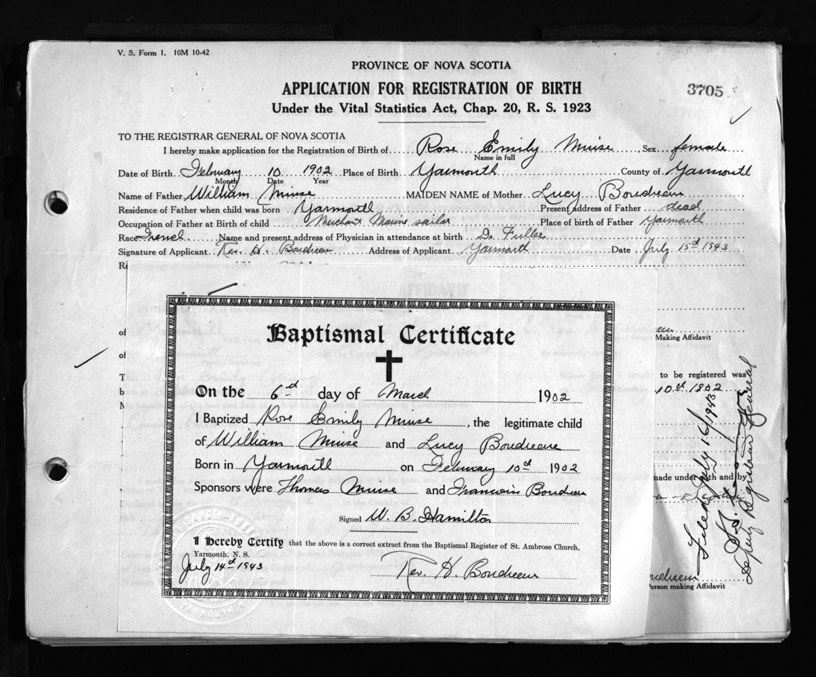 V. S. Form 1. 10M 10-42
PROVINCE OF NOVA SCOTIA
APPLICATION FOR REGISTRATION OF BIRTH
3705
Under the Vital Statistics Act, Chap. 20, R. S. 1923
TO THE REGISTRAR GENERAL OF NOVA SCOTIA
I hereby make application for the Registration of Birth of Rose Emily Muise Sex female
Name in full
Date of Birth February 10 1902 Place of Birth Yarmouth County of Yarmouth
Month Date Year
Name of Father William Muise MAIDEN NAME of Mother Lucy Boudreau
Residence of Father when child was born Yarmouth Present Address of Father dead
Occupation of Father at Birth of child Merchant Marine sailor Place of birth of Father Yarmouth
Race French Name and present address of Physician in attendance at birth D. Fuller
Signature of Applicant Rev. H. Boudreau Address of Applicant Yarmouth Date July 15th 1943
Making Affidavit
to be registered was
10th 1902
made under oath and by
Person making Affidavit
Filed July 16/1943
Deputy Registrar General
Baptismal Certificate
On the 6th day of March 1902
I Baptized Rose Emily Muise, the legitimate child
of William Muise and Lucy Boudreau
Born in Yarmouth on February 10th 1902
Sponsors were Thomas Muise and Boudreau
Signed W. B. Hamilton
I Hereby Certify that the above is a correct extract from the Baptismal Register of St. Ambrose Church,
Yarmouth, N. S.
July 14th 1943
Rev. H. Boudreau